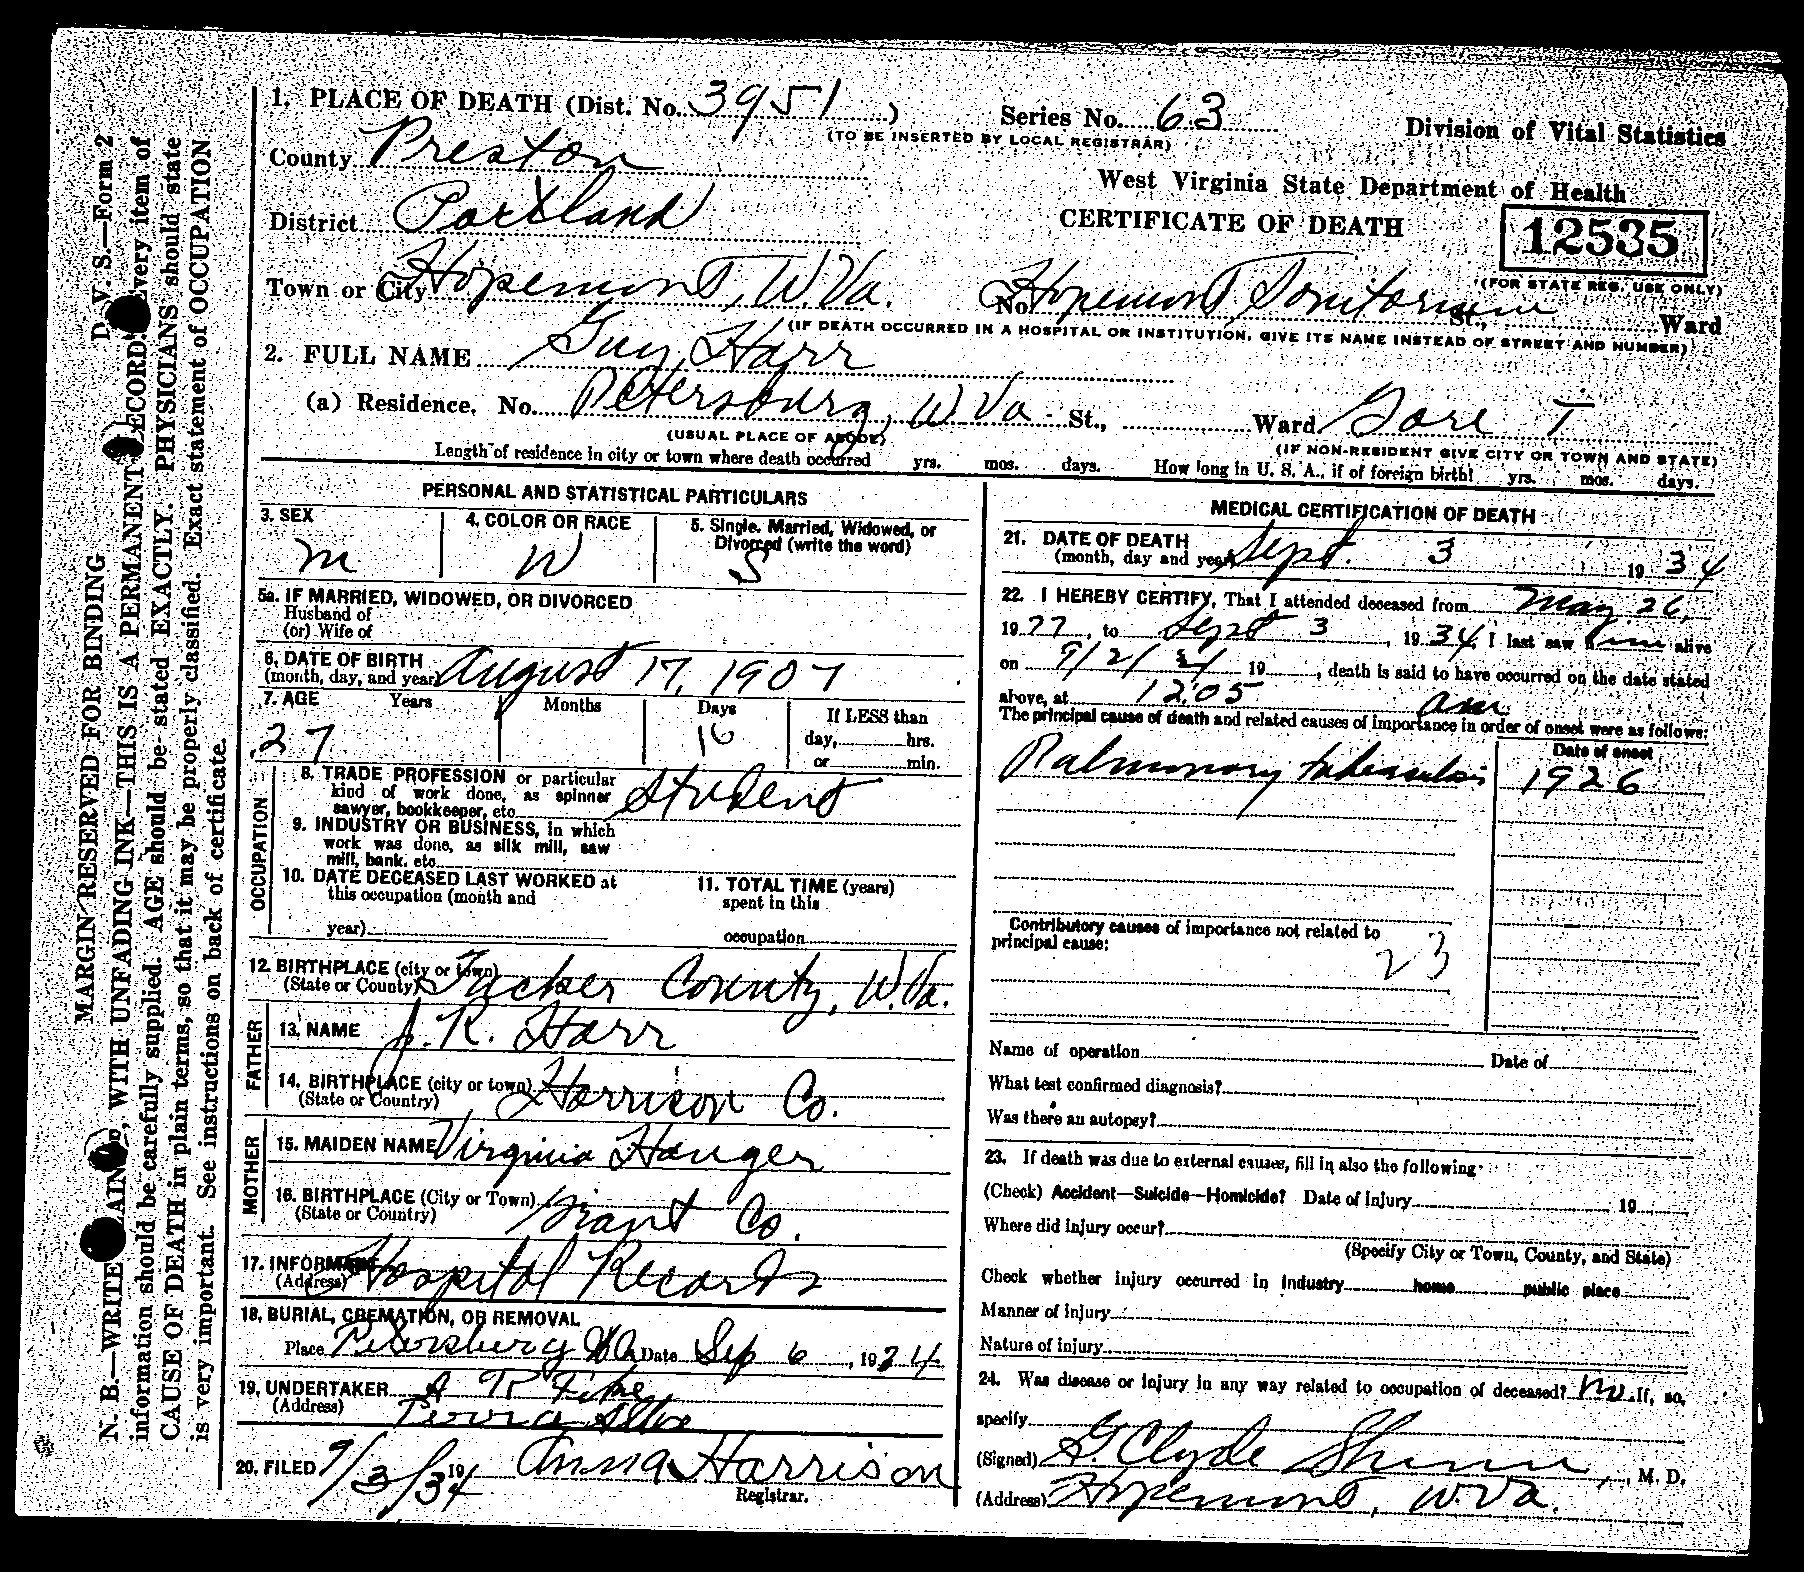 1. PLACE OF DEATH (Dist. No. 3951 )
Series No. 63
(TO BE INSERTED BY LOCAL REGISTRAR)
Division of Vital Statistics
County Preston
West Virginia State Department of Health
CERTIFICATE OF DEATH
12535
(FOR STATE REG. USE ONLY)
District Portland
Town or City Hopemont, W.Va. No. Hopemont Sanitarium St., Ward
(IF DEATH OCCURRED IN A HOSPITAL OR INSTITUTION, GIVE ITS NAME INSTEAD OF STREET AND NUMBER)
2. FULL NAME Guy Harr
(a) Residence. No. Petersburg, W.Va. St., Ward
(USUAL PLACE OF ABODE)
(IF NON-RESIDENT GIVE CITY OR TOWN AND STATE)
Length of residence in city or town where death occurred yrs. mos. days. How long in U. S. A., if of foreign birth? yrs. mos. days.
PERSONAL AND STATISTICAL PARTICULARS
3. SEX
M
4. COLOR OR RACE
W
5. Single. Married, Widowed, or
Divorced (write the word)
S
5a. IF MARRIED, WIDOWED, OR DIVORCED
Husband of
(or) Wife of
6. DATE OF BIRTH
(month, day, and year) August 17, 1907
7. AGE Years Months Days If LESS than
27 16 day, hrs.
or min.
OCCUPATION
8. TRADE PROFESSION or particular
kind of work done, as spinner
sawyer, bookkeeper, etc. Student
9. INDUSTRY OR BUSINESS, in which
work was done, as silk mill, saw
mill, bank, etc.
10. DATE DECEASED LAST WORKED at
this occupation (month and
year)
11. TOTAL TIME (years)
spent in this
occupation
12. BIRTHPLACE (city or town)
(State or County) Tucker County, W.Va.
FATHER
13. NAME J. R. Harr
14. BIRTHPLACE (city or town)
(State or Country) Harrison Co.
MOTHER
15. MAIDEN NAME Virginia Hauger
16. BIRTHPLACE (City or Town)
(State or Country) Grant Co.
17. INFORMANT Hospital Records
(Address)
18. BURIAL, CREMATION, OR REMOVAL
Place Petersburg Date Sep 6, 1934
19. UNDERTAKER
(Address)
20. FILED 9/3/34 19 Anna Harrison
Registrar.
MEDICAL CERTIFICATION OF DEATH
21. DATE OF DEATH
(month, day and year) Sept. 3 1934
22. I HEREBY CERTIFY, That I attended deceased from May 26,
19 , to Sept 3, 1934, I last saw him alive
on 9/2/34 19 , death is said to have occurred on the date stated
above, at 12:05 am.
The principal cause of death and related causes of importance in order of onset were as follows:
Date of onset
Pulmonary tuberculosis 1926
Contributory causes of importance not related to
principal cause:
23
Name of operation Date of
What test confirmed diagnosis?
Was there an autopsy?
23. If death was due to external causes, fill in also the following:
(Check) Accident—Suicide—Homicide? Date of Injury 19
Where did injury occur?
(Specify City or Town, County, and State)
Check whether injury occurred in industry home public place
Manner of injury
Nature of injury
24. Was disease or injury in any way related to occupation of deceased? No. If, so,
specify
(Signed) G. Clyde Shinn, M. D.
(Address) Hopemont, W.Va.
D. V. S.—Form 2
MARGIN RESERVED FOR BINDING
N. B.—WRITE WITH UNFADING INK—THIS IS A PERMANENT RECORD. Every item of
information should be carefully supplied. AGE should be stated EXACTLY. PHYSICIANS should state
CAUSE OF DEATH in plain terms, so that it may be properly classified. Exact statement of OCCUPATION
is very important. See instructions on back of certificate.